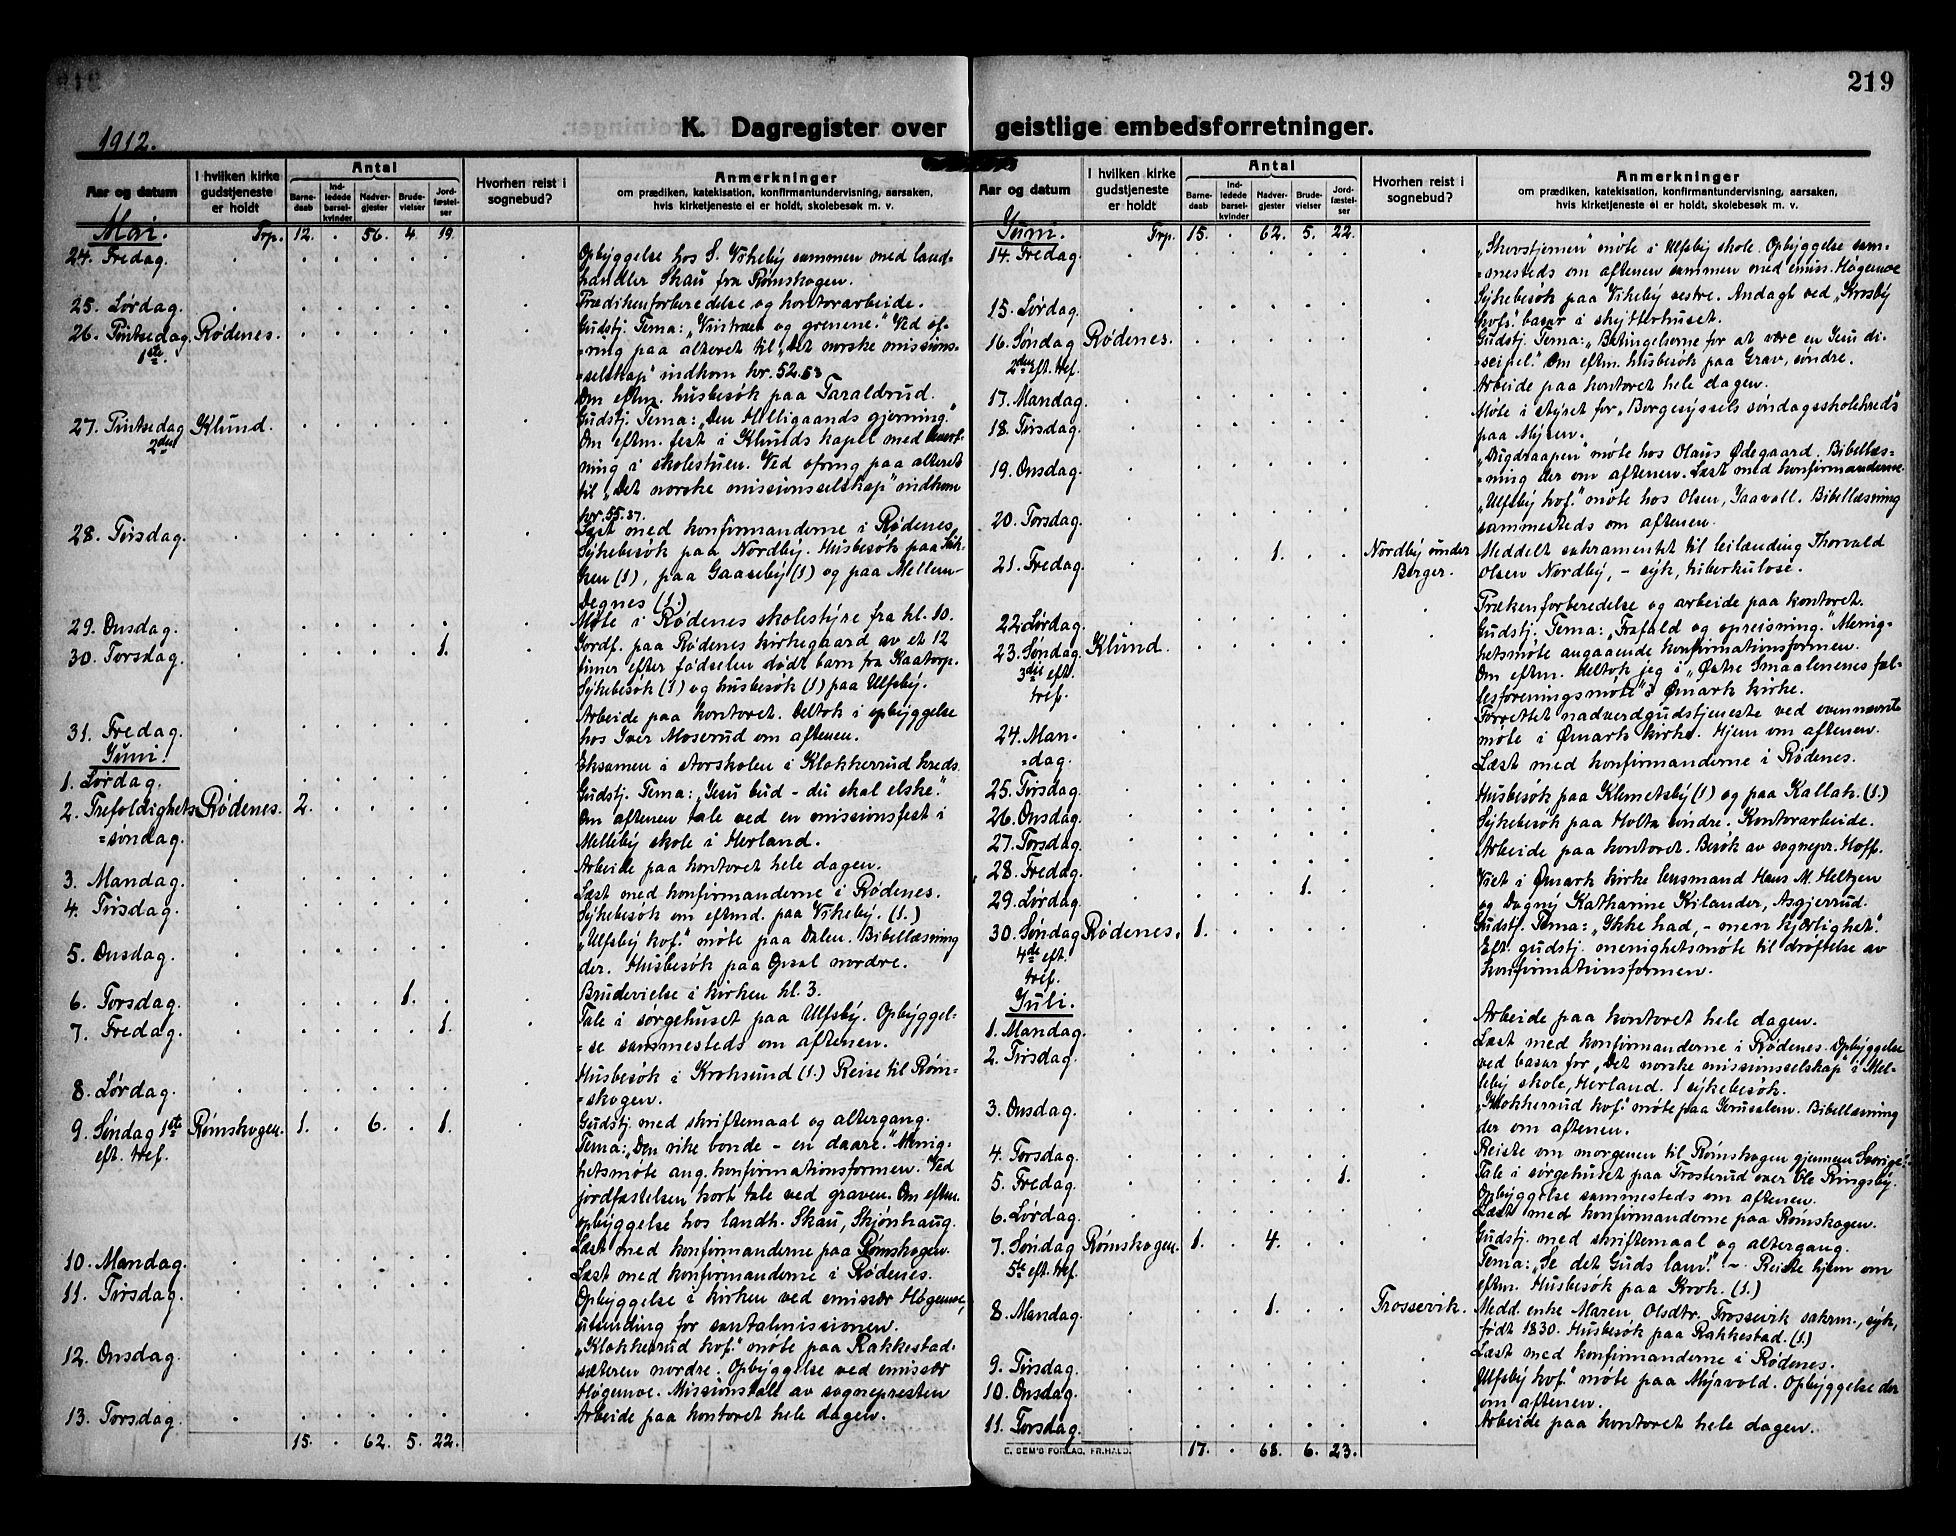 219
1912.
K. Dagregister over geistlige embedsforretninger.
Aar og datum
I hvilken kirke gudstjeneste er holdt
Antal
Barne-daab
Ind-ledede barsel-kvinder
Nadver-gjester
Brude-vielser
Jord-fæstel-ser
Hvorhen reist i sognebud?
Anmerkninger
om prædiken, katekisation, konfirmantundervisning, aarsaken,
hvis kirketjeneste ei er holdt, skolebesøk m. v.
Mai. Trp. 12. 56. 4. 19.
24. Fredag. Opbyggelse hos S. Vikeby sammen med land-
handler Skau fra Rømskogen.
25. Lørdag. Prædikenforberedelse og kontorarbeide.
26. Pintsedag Rødenes. Gudstj. Tema: „Vintræet og grenene." Ved of-
1ste. =ring paa alteret til „Det norske missions-
=selskap" indkom kr. 52.53
Om eftm. husbesøk paa Taraldrud.
27. Pintsedag Klund. Gudstj. Tema: „Den Helligaands gjerning."
2den Om eftm. fest i Klunds kapel med
ning i skolestuen. Ved ofring paa alteret
til „Det norske missionsselskap" indkom
kr. 55.37.
28. Tirsdag. Læst med konfirmanderne i Rødenes.
Sykebesøk paa Nordby. Husbesøk paa
(1), paa Gaaseby (1) og paa Mellem-
Degnes (1.)
29. Onsdag. Møte i Rødenes skolestyre fra kl. 10.
30. Torsdag. 1. Jordf. paa Rødenes kirkegaard av et 12
timer efter fødselen dødt barn fra Kaatorp.
Sykebesøk (1) og husbesøk (1) paa Ulfsby.
31. Fredag. Arbeide paa kontoret. Deltok i opbyggelse
hos Iver Moserud om aftenen.
Juni.
1. Lørdag. Eksamen i storskolen i Klokkerrud kreds.
2. Trefoldighets- Rødenes. 2. Gudstj. Tema: „Jesu bud - du skal elske."
=søndag. Om aftenen tale ved en missionsfest i
Melleby skole i Herland.
3. Mandag. Arbeide paa kontoret hele dagen.
4. Tirsdag. Læst med konfirmanderne i Rødenes.
Sykebesøk om eftmd. paa Vikeby. (1.)
5. Onsdag. „Ulfsby kvf." møte paa Dalen. Bibellæsning
der. Husbesøk paa Opsal nordre.
6. Torsdag. 1. Brudevielse i kirken kl. 3.
7. Fredag. 1. Tale i sørgehuset paa Ulfsby. Opbyggel-
=se sammesteds om aftenen.
8. Lørdag. Husbesøk i Kroksund (1.) Reise til Røm-
=skogen.
9. Søndag 1ste Rømskogen. 1. 6. 1. Gudstj. med skriftemaal og altergang.
eft. tref. Tema: „Den rike bonde - en daare." Menig-
hetsmøte ang. konfirmationsformen. Ved
jordfæstelsen kort tale ved graven. Om eftm.
opbyggelse hos landh. Skau, Skjønhaug.
10. Mandag. Læst med konfirmanderne paa Rømskogen.
11. Tirsdag. Læst med konfirmanderne i Rødenes.
Opbyggelse i kirken ved emissær Høgemoe,
utsending for santalmissionen.
12. Onsdag. „Klokkerrud kvf." møte paa Rakkestad-
sæteren nordre. Opbyggelse ved emissær
Høgemoe. Missionstale av sognepresten
13. Torsdag. Arbeide paa kontoret hele dagen.
15. 62. 5. 22.
Aar og datum
I hvilken kirke gudstjeneste er holdt
Antal
Barne-daab
Ind-ledede barsel-kvinder
Nadver-gjester
Brude-vielser
Jord-fæstel-ser
Hvorhen reist i sognebud?
Anmerkninger
om prædiken, katekisation, konfirmantundervisning, aarsaken,
hvis kirketjeneste ei er holdt, skolebesøk m. v.
Juni. Trp. 15. 62. 5. 22.
14. Fredag. møte i Ulfsby skole. Opbyggelse sam-
=mesteds om aftenen sammen med emiss. Høgemoe
15. Lørdag. Sykebesøk paa Vikeby vestre. Andagt ved „Krosby
kvfs." basar i skytterhuset.
16. Søndag Rødenes. Gudstj. Tema: „Betingelserne for at være en Jesu di-
2den eft. tref. scipel." Om eftm. husbesøk paa Grav, søndre.
17. Mandag. Arbeide paa kontoret hele dagen.
18. Tirsdag. Møte i styret for „Borgesyssels søndagsskolekreds"
paa Mysen.
19. Onsdag. møte hos Olaus Ødegaard. Bibellæs-
=ning der om aftenen. Læst med konfirmanderne.
20. Torsdag. „Ulfsby kvf." møte hos Olsen, Jaavall. Bibellæsning
sammesteds om aftenen.
21. Fredag. 1. Nordby under Berger. Meddelt sakramentet til leilænding Thorvald
Olsen Nordby, - syk, tuberkulose.
22. Lørdag. Prækenforberedelse og arbeide paa kontoret.
23. Søndag Klund. Gudstj. Tema: „Frafald og opreisning." Menig-
3die eft. tref. hetsmøte angaaende konfirmationsformen.
Om eftm. deltok jeg i „Østre Smaalenenes fæl-
lesforeningsmøte" i Ømark kirke.
24. Man- Forrettet nadverdgudstjeneste ved ovennævnte
=dag. møte i Ømark kirke. Hjem om aftenen.
25. Tirsdag. Læst med konfirmanderne i Rødenes.
26. Onsdag. Husbesøk paa Klemetsby (1) og paa Kallak. (1.)
27. Torsdag. Sykebesøk paa Holta søndre. Kontorarbeide.
28. Fredag. Arbeide paa kontoret. Besøk av sognepr. Hoff.
29. Lørdag. 1. Viet i Ømark kirke lensmand Hans M. Heltzen
og Dagny Katharine Kilander, Asgjerrud.
30. Søndag Rødenes. 1. Gudstj. Tema: „Ikke had, - men kjærlighet."
4de eft. tref. Eft. gudstj. menighetsmøte til drøftelse av
konfirmationsformen.
Juli.
1. Mandag. Arbeide paa kontoret hele dagen.
2. Tirsdag. Læst med konfirmanderne i Rødenes. Opbyggelse
ved basar for „Det norske missionsselskap" i Mel-
leby skole, Herland. 1 sykebesøk.
3. Onsdag. „Klokkerrud kvf." møte paa Jerusalem. Bibellæsning
der om aftenen.
4. Torsdag. Reiste om morgenen til Rømskogen gjennem Sverige.
5. Fredag. 1. Tale i sørgehuset paa Trosterud over Ole Ringsby.
Opbyggelse sammesteds om aftenen.
6. Lørdag. Læst med konfirmanderne paa Rømskogen.
7. Søndag Rømskogen. 1. 4. Gudstj. med skriftemaal og altergang.
5te eft. tref. Tema: „Se det Guds lam!" - Reiste hjem om
eftm. Husbesøk paa Krok. (1.)
8. Mandag. 1. Trossevik. Medd. enke Maren Olsdtr. Trossevik sakrm., syk,
født 1830. Husbesøk paa Rakkestad. (1.)
9. Tirsdag. Læst med konfirmanderne i Rødenes.
10. Onsdag. Ulfsby kvf." møte paa Myrvold. Opbyggelse der
om aftenen.
11. Torsdag. Arbeide paa kontoret hele dagen.
E. SEM'S FORLAG, FR.HALD. 17. 68. 6. 23.